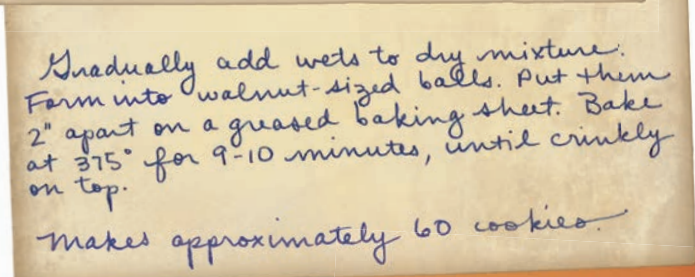 Gradually add wets to dry mixture.
Form into walnut-sized balls. Put them
2" apart on a greased baking sheet. Bake
at 375° for 9-10 minutes, until crinkly
on top.
Makes approximately 60 cookies.